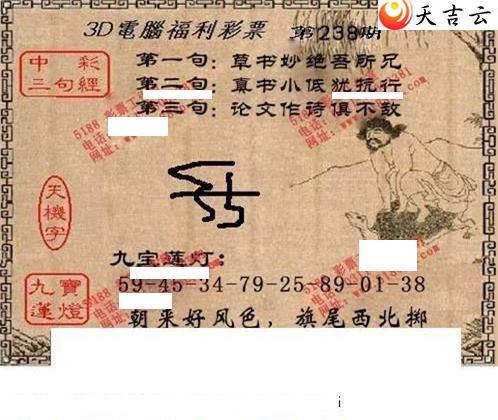 天吉云
3D電腦福利彩票 第238期
中彩
三句經
第一句：草书妙绝吾所兄
第二句：真书小低犹抗行
第三句：论文作诗俱不敌
天機字
九宝莲灯：
九寶
蓮燈
59-45-34-79-25-89-01-38
朝来好风色，旗尾西北掷
i